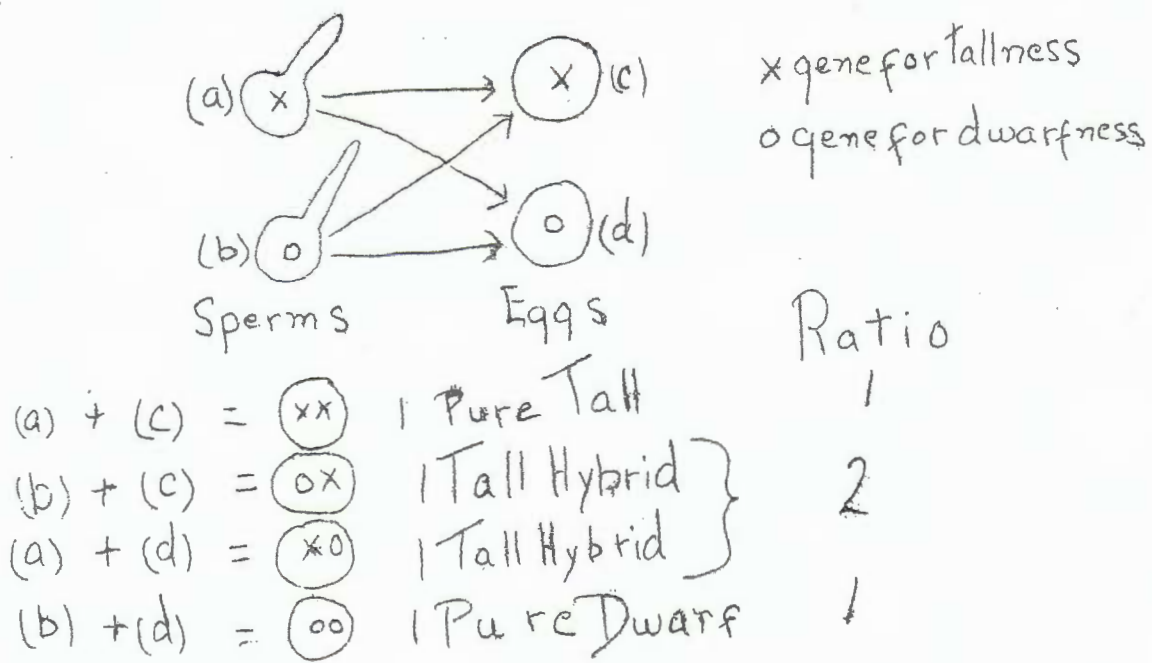 (a) x x (c) x gene for tallness
o gene for dwarfness
(b) o o (d)
Sperms Eggs
Ratio
(a) + (c) = xx 1 Pure Tall 1
(b) + (c) = ox 1 Tall Hybrid
2
(a) + (d) = xo 1 Tall Hybrid
(b) + (d) = oo 1 Pure Dwarf 1